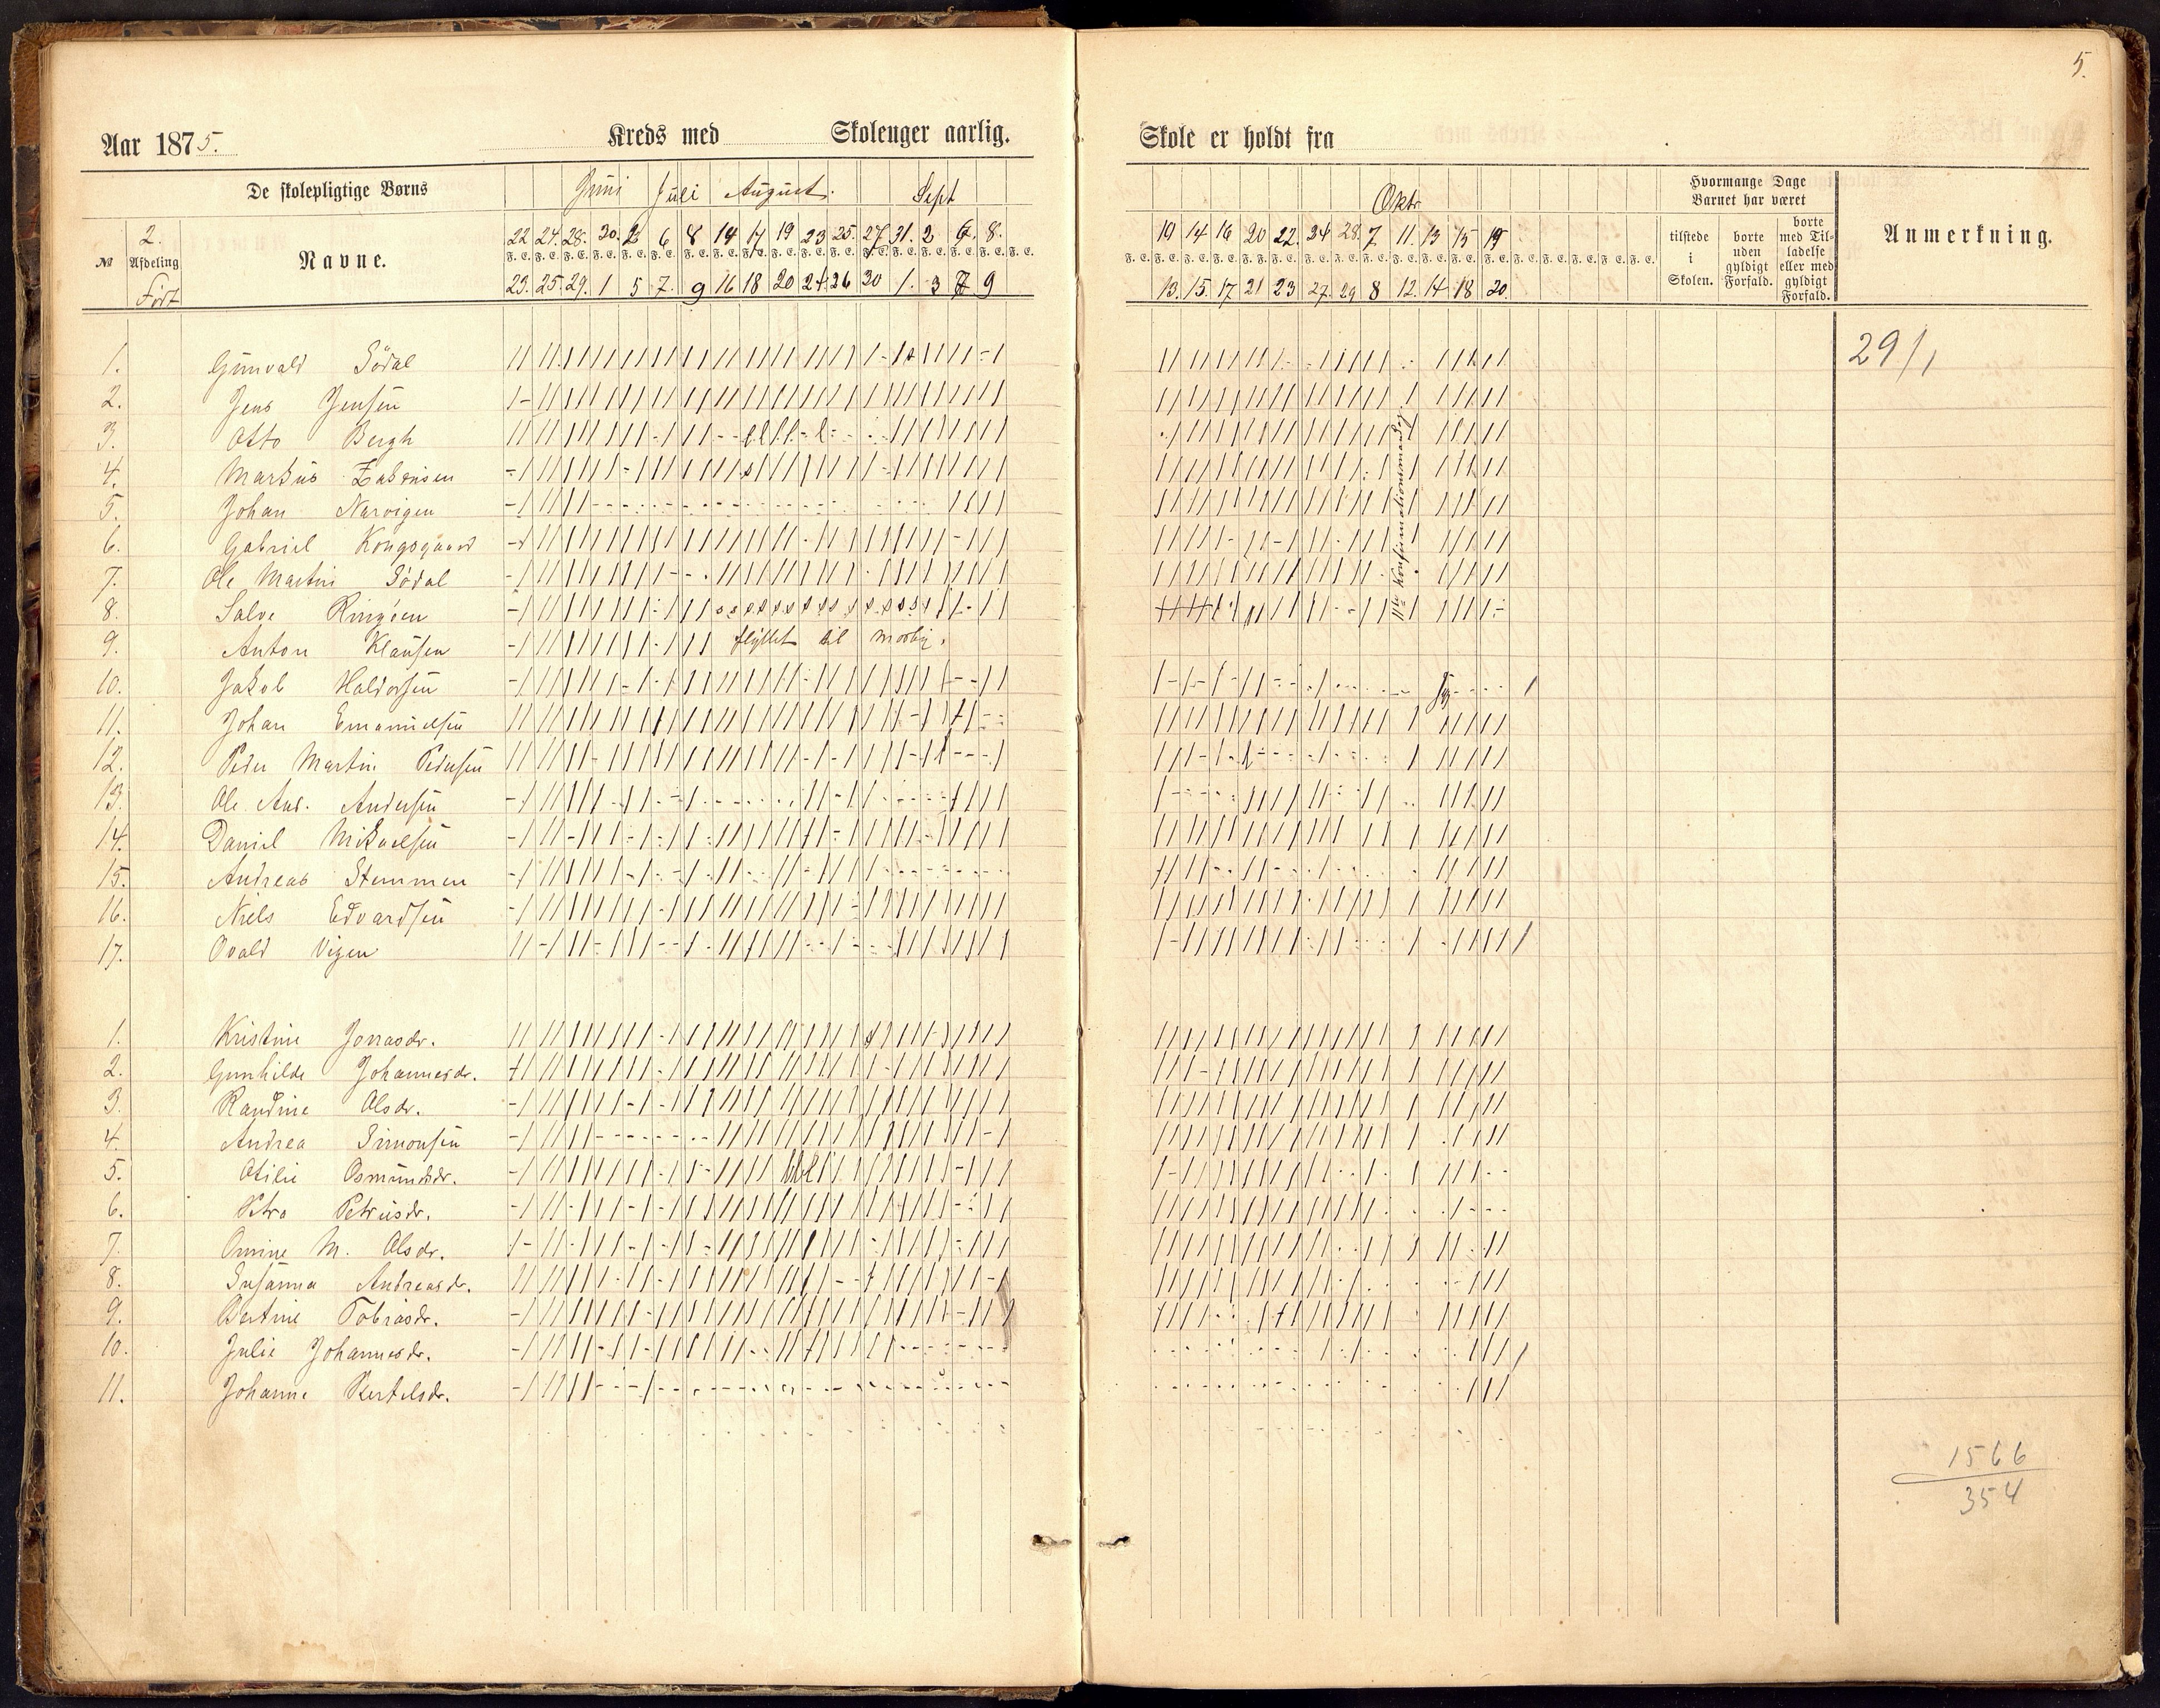 5.
Aar 1875.
Kreds med Skoleuger aarlig.
Skole er holdt fra
De skolepligtige Børns
Juni Juli August. Sept
Oktr
Hvormange Dage Barnet har været
No
2. Afdeling
Født
Navne.
22 24. 28. 30. 2 6 8 14 17 19 23 25. 27 31. 2 6. 8.
F. E. F. E. F. E. F. E. F. E. F. E. F. E. F. E. F. E. F. E. F. E. F. E. F. E. F. E. F. E. F. E. F. E. F. E.
23. 25. 29. 1 5 7. 9 16 18 20 24 26 30 1. 3 7 9
10 14 16 20 22. 24 28. 7 11. 13 15 19
F. E. F. E. F. E. F. E. F. E. F. E. F. E. F. E. F. E. F. E. F. E. F. E. F. E. F. E. F. E. F. E. F. E. F. E.
13. 15. 17 21 23 27. 29 8 12. 14 18 20.
tilstede i Skolen.
borte uden gyldigt Forfald.
borte med Tilladelse eller med gyldigt Forfald.
Anmerkning.
1. Gunvald Södal
29/1
2. Jens Jensen
3. Otto Bergh
4. Markus
5. Johan Narvigen
6. Gabriel Kongsgaard
7. Ole Martin Södal
8. Salve Ringöen
11te Konfirmationsmandag
9. Anton Klausen flyttet til Mosby.
10. Jakob Haldorsen syg
11. Johan Emanuelsen
12. Peder Martin Pedersen
13. Ole And. Andersen
14. Daniel Mikaelsen
15. Andreas Stemmen
16. Niels Edvardsen
17. Osvald Vigen
1. Kristine Jonasdr.
2. Gunhilde Johannesdr.
3. Randine Olsdr.
4. Andrea Simonsen
5. Otilie Osmundsdr.
6. Petra Petrusdr.
7. Omine M. Olsdr.
8. Susanna Andreasdr.
9. Bertine Tobiasdr.
10. Julie Johannesdr.
11. Johanne Bertelsdr.
1566
354